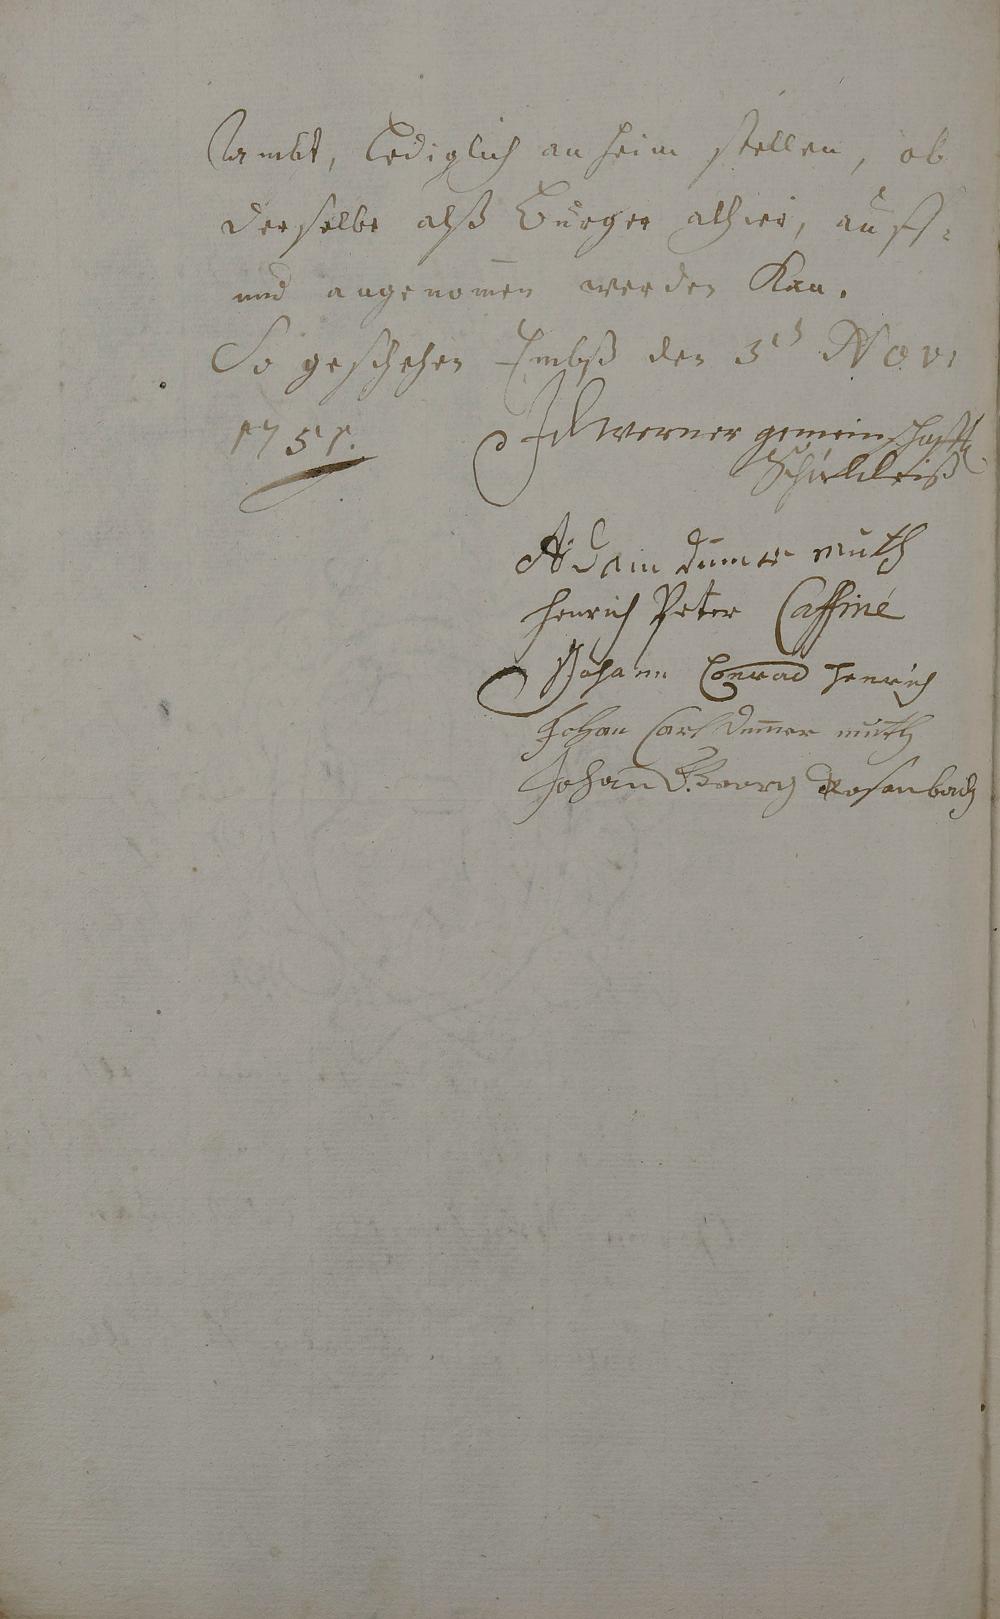 Ambt, Lediglich an heim stellen, ob
derselbe alß Burger alhier, auff-
und angenom̄en werden Kan.
So geschehen Embß den 3t Nov:
1751.
Werner gemeinschaftl.
Schultheiß
Adam Dumer muth
Henrich Peter Caffiné
Johann Conrad Henrich
Johan Carl Dum̄er muth
Johan Georg Rosenbach